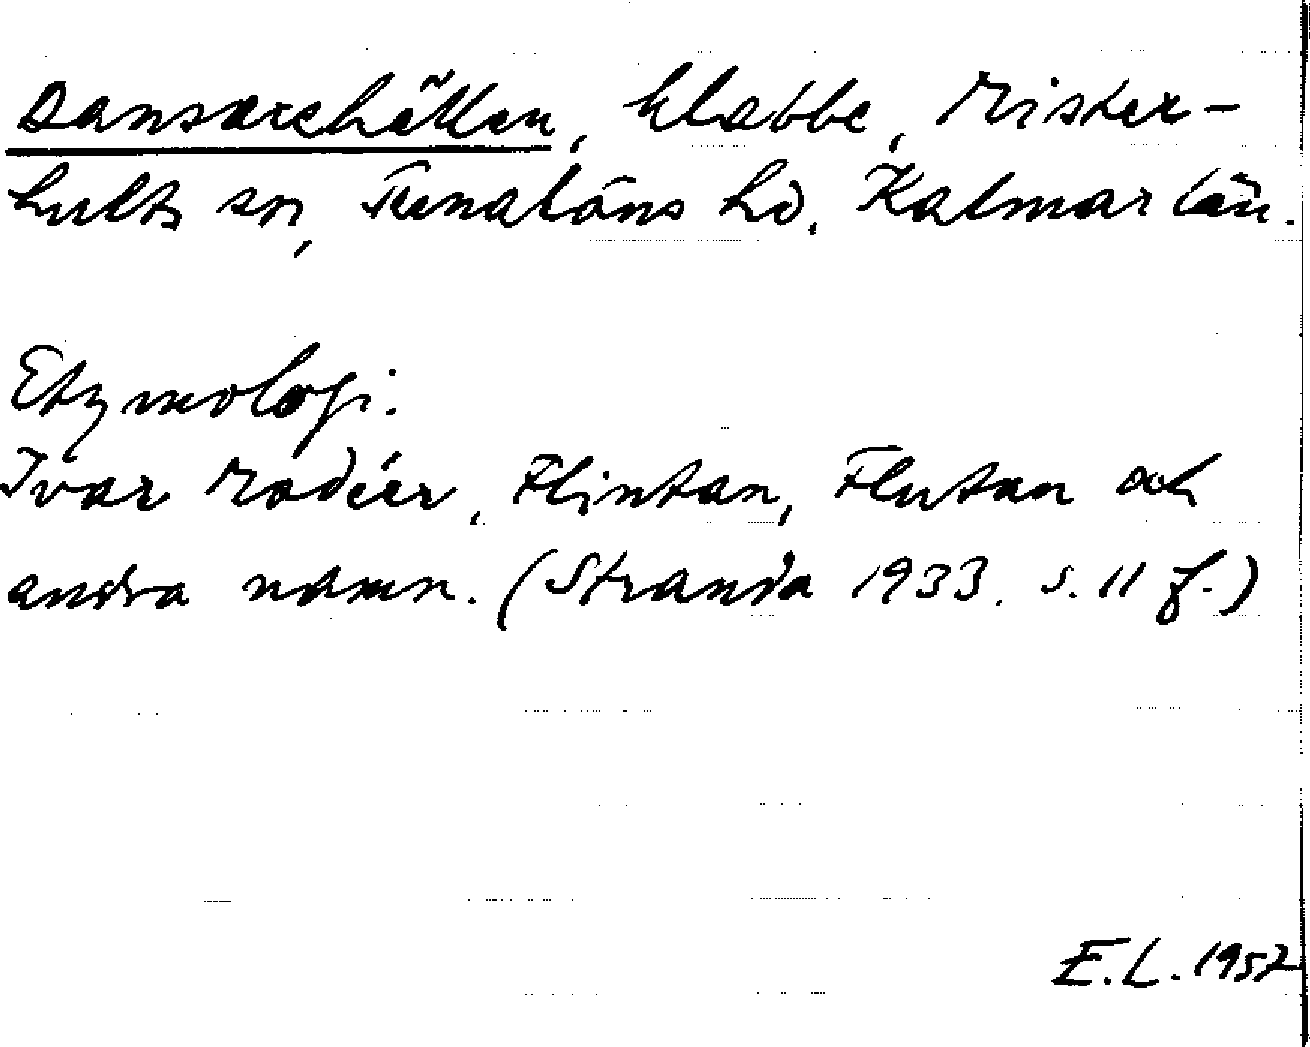 Dansarehällen, klabbe, Mister-
hults sn, Tunaläns hd, Kalmar län.
Etymologi:
Ivar Modéer, Flintan, Flutan och
andra namn. (Stranda 1933. s. 11 f.)
E.L. 1952